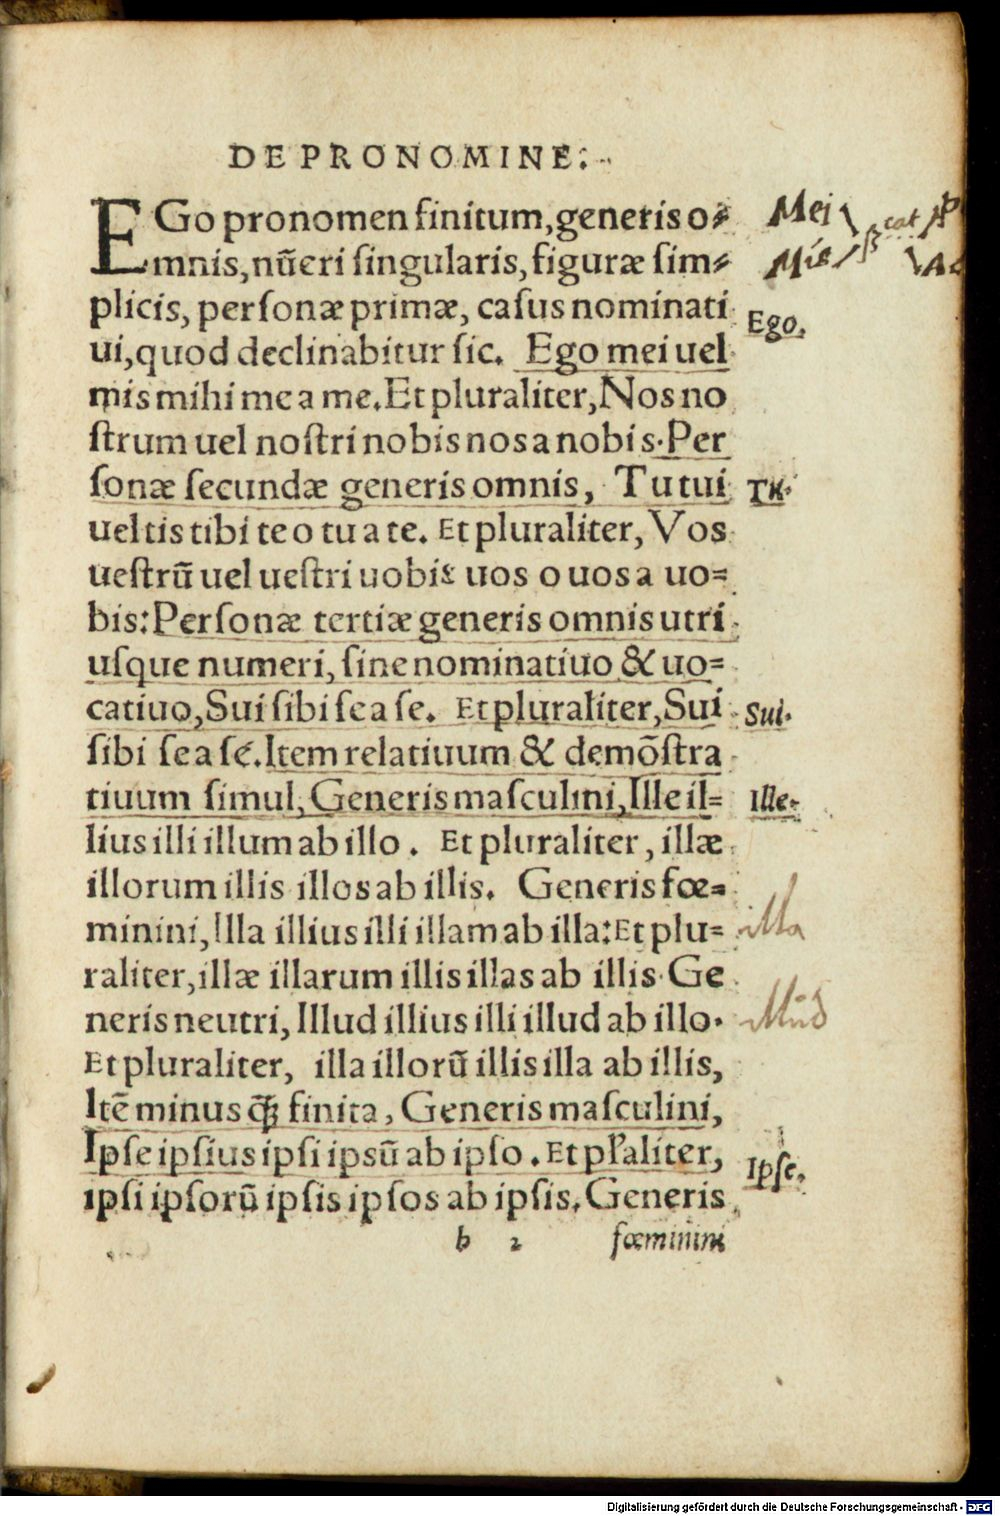 DE PRONOMINE.
EGo pronomen finitum, generis o-
mnis, nūeri singularis, figuræ sim-
plicis, personæ primæ, casus nominati
ui, quod declinabitur sic. Ego mei uel
mis mihi me a me. Et pluraliter, Nos no
strum uel nostri nobis nos a nobis. Per
sonæ secundæ generis omnis, Tu tui
uel tis tibi te o tu a te. Et pluraliter, Vos
uestrū uel uestri uobis uos o uos a uo=
bis: Personæ tertiæ generis omnis utri
usque numeri, sine nominatiuo & uo=
catiuo, Sui sibi se a se. Et pluraliter, Sui
sibi se a se. Item relatiuum & demōstra
tiuum simul, Generis masculini, Ille il=
lius illi illum ab illo. Et pluraliter, illæ
illorum illis illos ab illis. Generis fœ=
minini, Illa illius illi illam ab illa: Et plu=
raliter, illæ illarum illis illas ab illis. Ge
neris neutri, Illud illius illi illud ab illo.
Et pluraliter, illa illorū illis illa ab illis,
Itē minus q̃ȝ finita, Generis masculini,
Ipse ipsius ipsi ipsū ab ipso. Et pl̃raliter,
ipsi ipsorū ipsis ipsos ab ipsis. Generis
b 2 fœminini
Mei
Mis
Ego.
Tu.
Sui.
Ille.
illa
illud
Ipse.
Digitalisierung gefördert durch die Deutsche Forschungsgemeinschaft - DFG